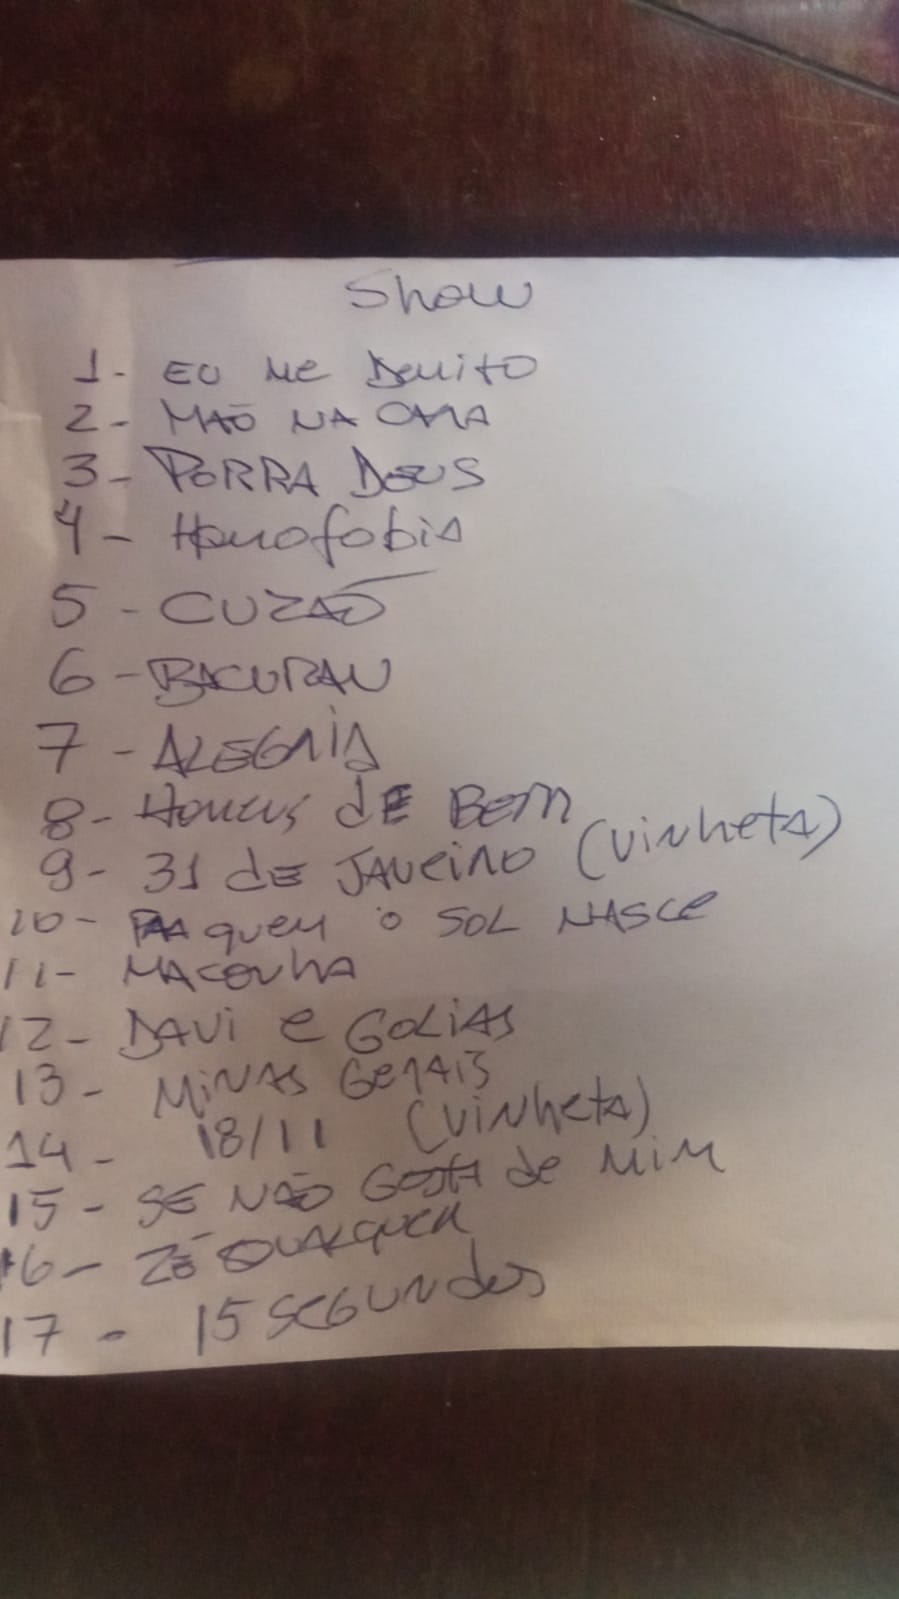 Show
1- EU ME DEMITO
2- MÃO NA CARA
3- PORRA DEUS
4- Homofobia
5- CUZÃO
6- BACURAU
7- ALEGRIA
8- Homens dE BEM
9- 31 dE JANEIRO (VINhetA)
10- PRA quem o SOL NASCE
11- MACONHA
12- DAVI e GOLIAS
13- MINAS GERAIS
14- 18/11 (VINhetA)
15- SE NÃO GOSTA de MIM
16- ZÉ QUALQUER
17- 15 SEGUNdos